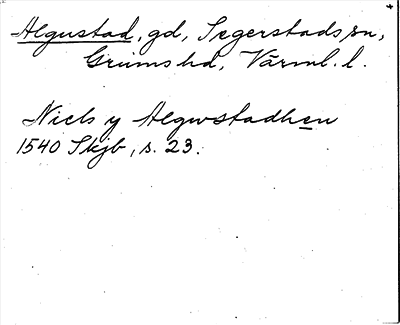 Algustad, gd, Segerstads sn,
Grums hd, Värml. l.
Niels y Algwstadhen
1540 Skjb, s. 23.